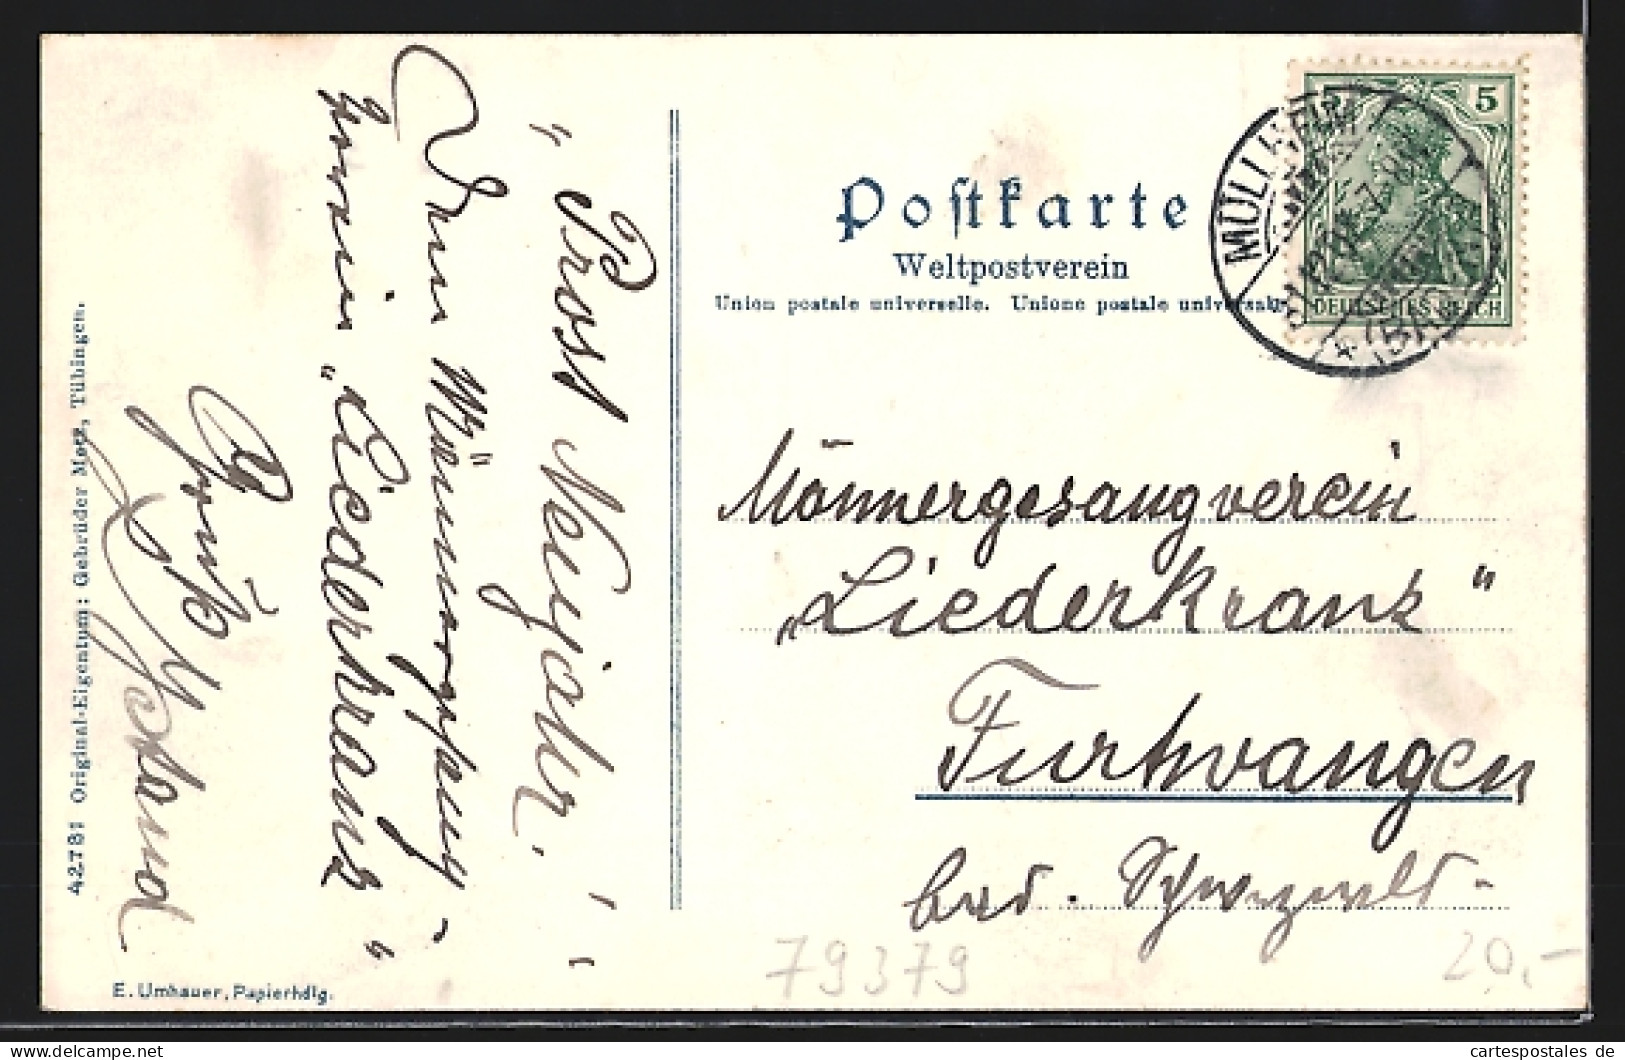 " Prost Neujahr. "
Dem Männergesang-
verein "Liederkranz"
Gruß
42781 Original-Eigentum: Gebrüder Metz, Tübingen.
E. Umhauer, Papierhdlg.
Postkarte
Weltpostverein
Union postale universelle. Unione postale universale
5 5
DEUTSCHES REICH
MÜLLHEIM
* (BADEN)
Männergesangverein
„Liederkranz"
Furtwangen
bad. Schwarzwald-
79379
20,-
cartespostales de